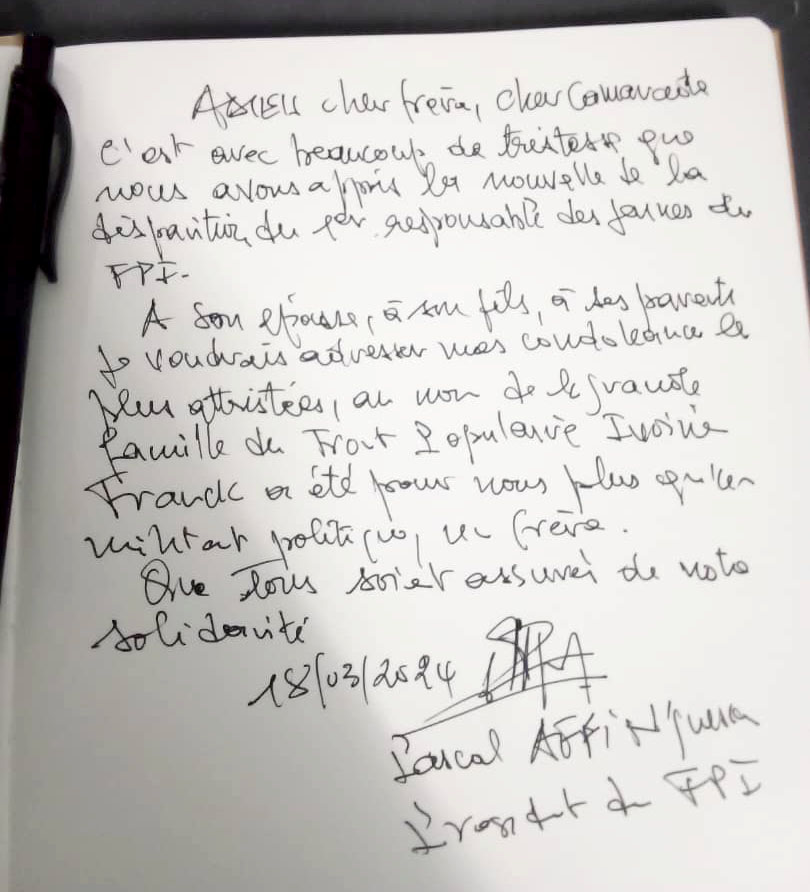 Adieu cher frère, cher Camarade
C'est avec beaucoup de tristesse que
nous avons appris la nouvelle de la
disparition du 1er responsable des jeunes du
FPI.
A son épouse, à son fils, à ses parents
Je voudrais adresser mes condoléances les
plus attristées, au nom de la grande
famille du Front Populaire Ivoirien
Franck a été pour nous plus qu'un
militant politique, un frère.
Que tous soient assurés de notre
solidarité
18/03/2024
Pascal AFFI N'Guessan
Président du FPI